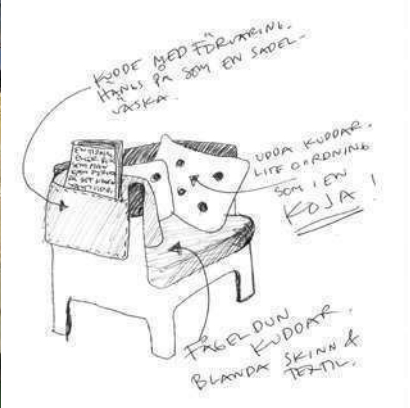 KUDDE MED FÖRVARING.
HÄNGS PÅ SOM EN SADEL-
VÄSKA.
UDDA KUDDAR.
LITE OORDNING
SOM I EN
KOJA!
FÅGELDUN
KUDDAR.
BLANDA SKINN &
TEXTIL.